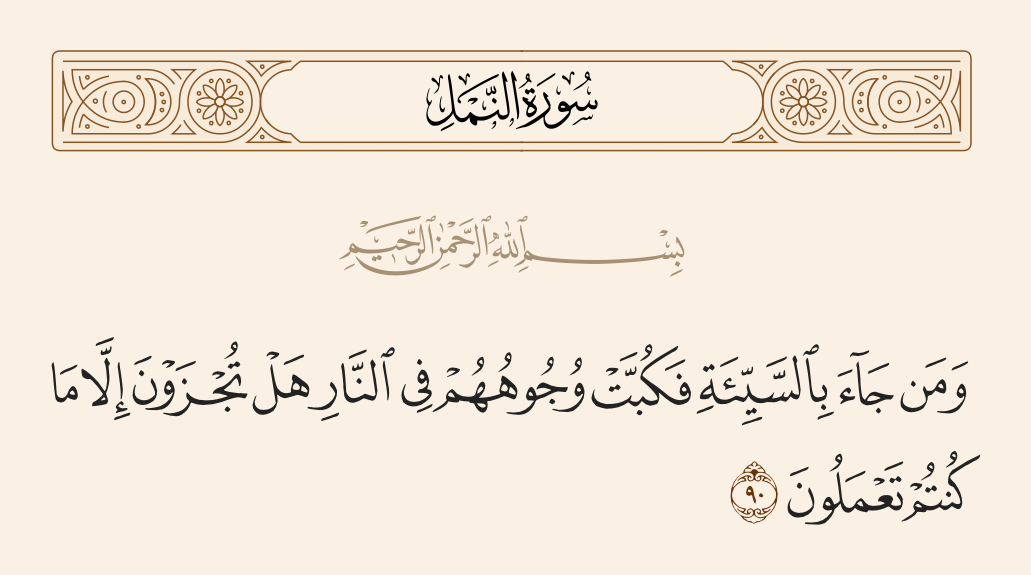 سُورَةُ النَّمْلِ
بِسْمِ ٱللَّهِ ٱلرَّحْمَٰنِ ٱلرَّحِيمِ
وَمَن جَآءَ بِٱلسَّيِّئَةِ فَكُبَّتْ وُجُوهُهُمْ فِى ٱلنَّارِ هَلْ تُجْزَوْنَ إِلَّا مَا
كُنتُمْ تَعْمَلُونَ ٩٠